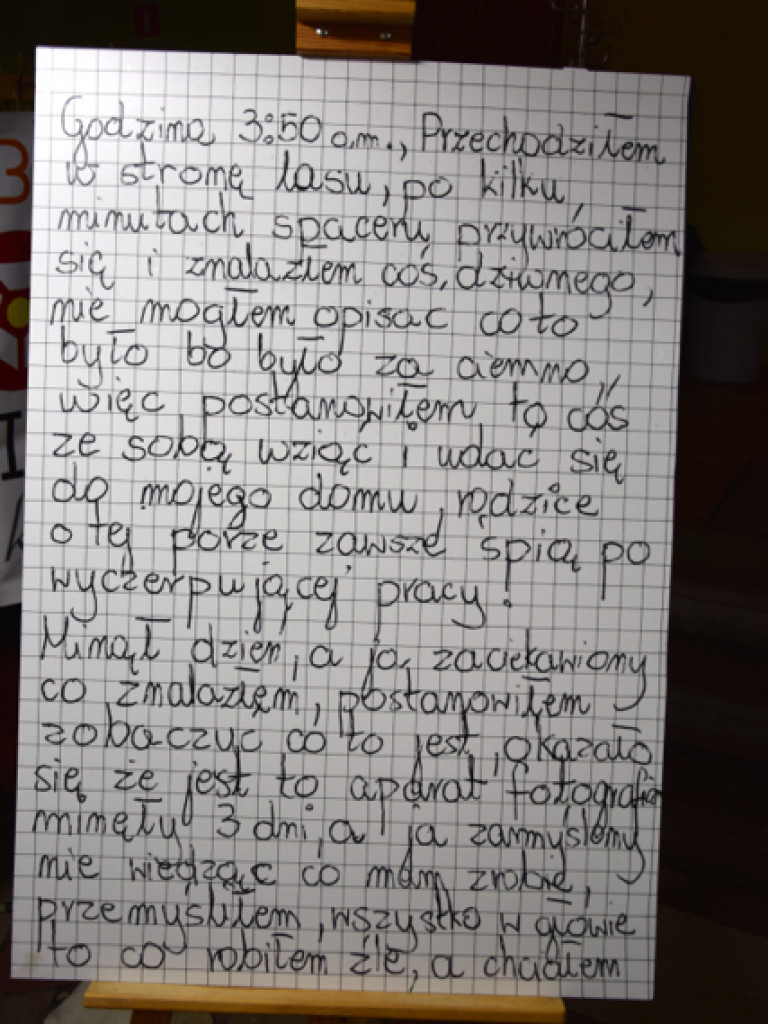 Godzina 3:50 a.m., Przechodziłem
w stronę lasu, po kilku
minutach spaceru przywróciłem
się i znalazłem coś dziwnego,
nie mogłem opisać co to
było bo było za ciemno,
więc postanowiłem to coś
ze sobą wziąć i udać się
do mojego domu, rodzice
o tej porze zawsze śpią po
wyczerpującej pracy!
Minął dzień, a ja zaciekawiony
co znalazłem, postanowiłem
zobaczyć co to jest, okazało
się że jest to aparat
minęły 3 dni, a ja zamyślony
nie wiedząc co mam
przemyśliłem, wszystko w głowie
to co robiłem źle, a chciałem
3